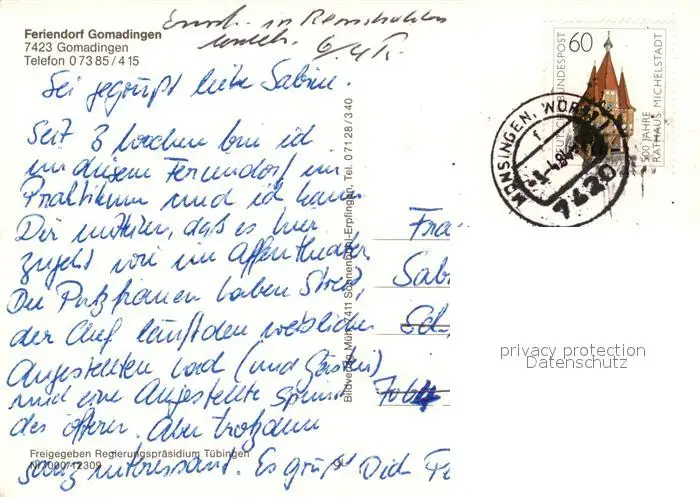 Feriendorf Gomadingen
7423 Gomadingen
Telefon 0 73 85 / 4 15
in Remscheid
6/4
Sei gegrüßt liebe Sabine.
Seit 3 Wochen bin ich
in diesem Feriendorf im
Praktikum und ich kann
Dir mitteilen, daß es hier
zugeht wie im Affentheater.
Die Putzfrauen haben Streit,
der Chef läuft den weiblichen
Angestellten nach (und Gästen)
und eine Angestellte spinnt
des öfteren. Aber trotzdem
ganz interessant. Es grüßt Dich
Freigegeben Regierungspräsidium Tübingen
Nr. 7000/12309
Bildverlag Müh 7411 Sonnenbühl-Erpfingen, Tel. 0 71 28 / 3 40
DEUTSCHE BUNDESPOST
60
500 JAHRE
RATHAUS MICHELSTADT
MÜNSINGEN, WÜRTT 1
7420
Fra
Sab
Sch
privacy protection
Datenschutz